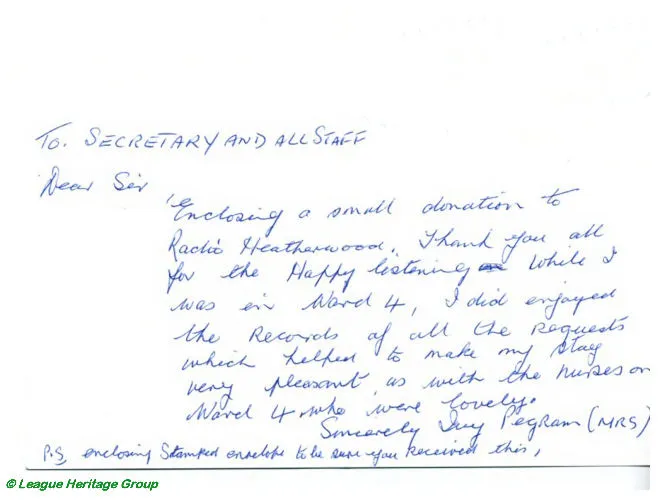 To. SECRETARY AND ALL STAFF
Dear Sir
'Enclosing a small donation to
Radio Heatherwood. Thank you all
for the Happy listening while I
was in Ward 4, I did engayed
the Records of all the requests
which helped to make my stay
very pleasant, as with the nurses on
Ward 4 who were lovely.
Sincerely Ivy Pegram (MRS)
P.S, enclosing Stamped envelope to be sure you received this,
© League Heritage Group